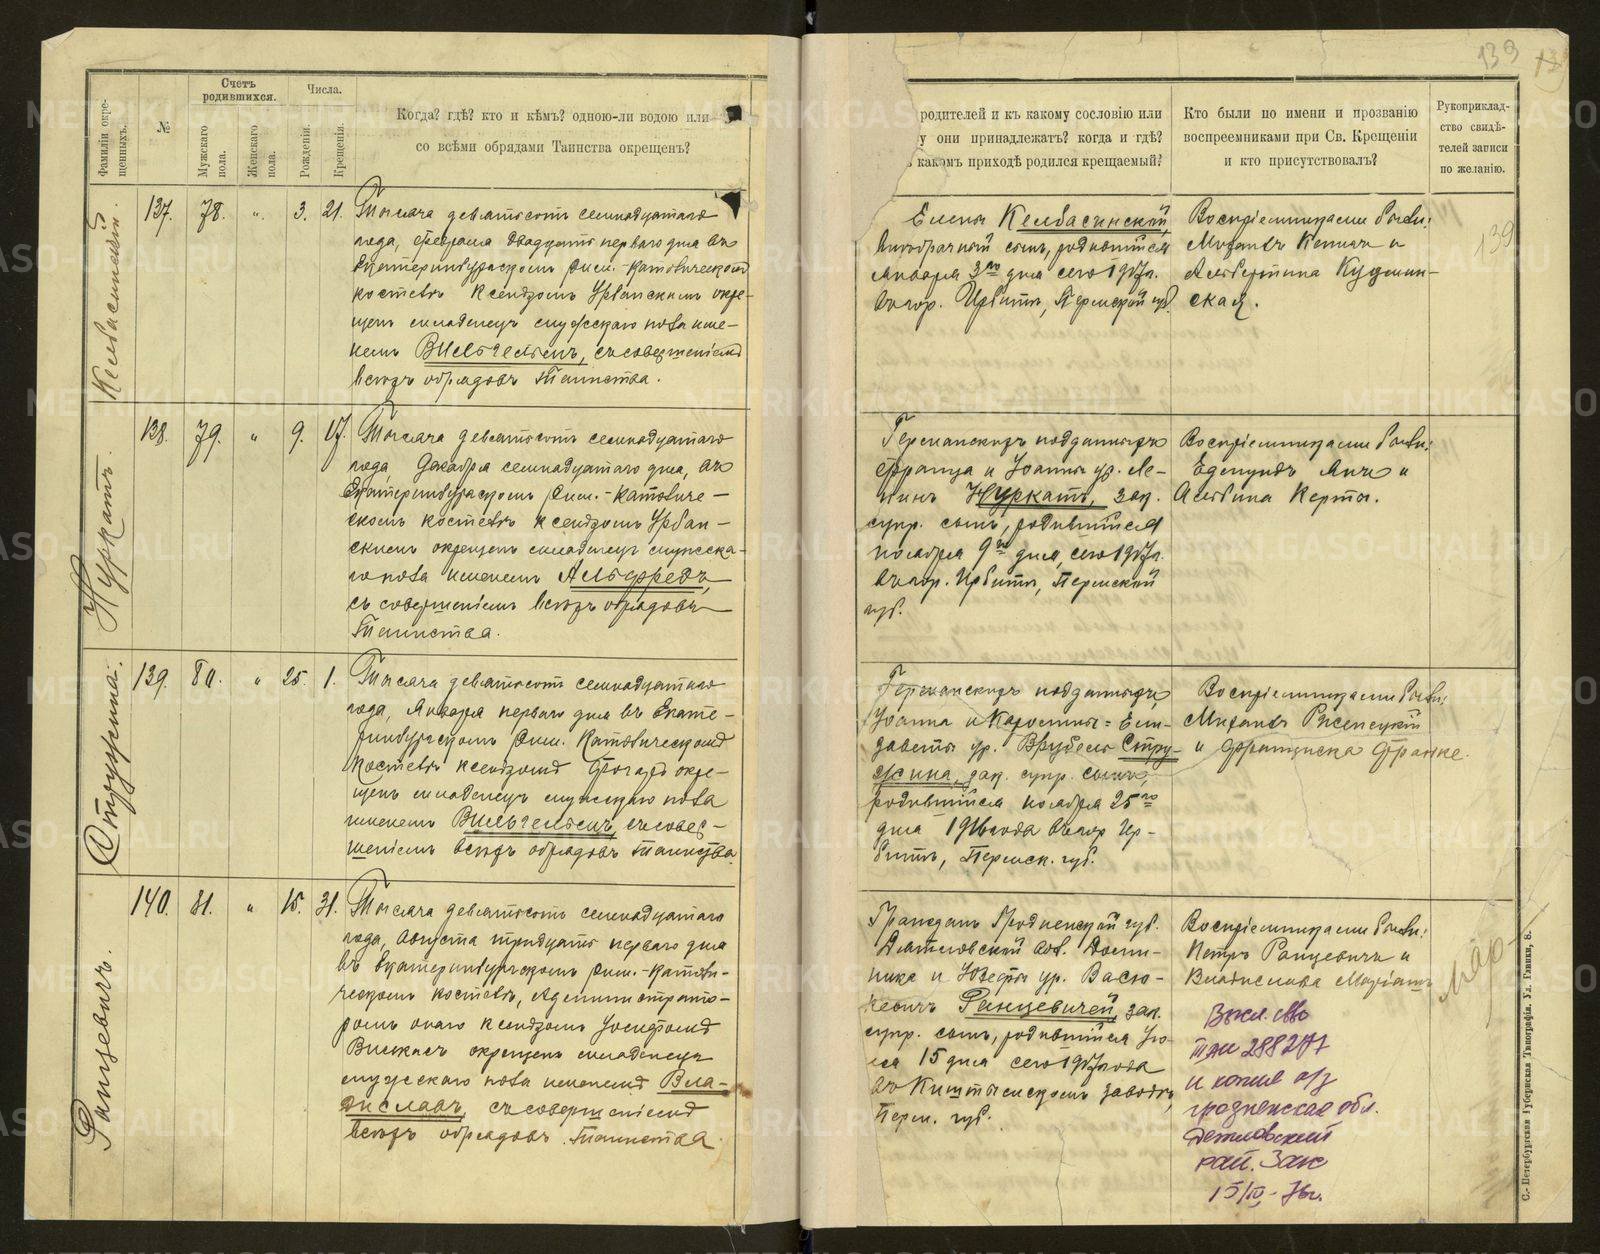 Фамиліи окре-
щенныхъ.
№
Счетъ
родившихся.
Мужскаго
пола.
Женскаго
пола.
Числа.
Рожденія.
Крещенія.
Когда? гдѣ? кто и кѣмъ? одною-ли водою или
со всѣми обрядами Таинства окрещенъ?
137. 78. „ 3. 21.
Тысяча девятьсотъ семнадцатаго
года, февраля двадцать перваго дня въ
Екатеринбургскомъ Рим.-Католическомъ
костелѣ ксендзомъ Урбанскимъ окре-
щенъ младенецъ мужескаго пола име-
немъ Вильгельмъ, съ совершеніемъ
всѣхъ обрядовъ Таинства.
138. 79. „ 9. 17.
Нуркатъ.
Тысяча девятьсотъ семнадцатаго
года, Декабря семнадцатаго дня, въ
Екатеринбургскомъ Рим.-Католиче-
скомъ костелѣ ксендзомъ Урбан-
скимъ окрещенъ младенецъ мужеска-
го пола именемъ Альфредъ,
съ совершеніемъ всѣхъ обрядовъ
Таинства.
139. 80. „ 25. 1.
Стружина.
Тысяча девятьсотъ семнадцатаго
года, Января перваго дня въ Екате-
ринбургскомъ Рим. Католическомъ
костелѣ ксендзомъ
окре-
щенъ младенецъ мужескаго пола
именемъ Вильгельмъ, съ совер-
шеніемъ всѣхъ обрядовъ Таинства.
140. 81. „ 15. 31.
Ранцевичъ.
Тысяча девятьсотъ семнадцатаго
года, Августа тридцать перваго дня
въ Екатеринбургскомъ Рим.-Католи-
ческомъ костелѣ, Администрато-
ромъ онаго ксендзомъ Іосифомъ
Вилкасъ окрещенъ младенецъ
мужескаго пола именемъ Вла-
диславъ, съ совершеніемъ
всѣхъ обрядовъ Таинства.
139
родителей и къ какому сословію или
у они принадлежатъ? когда и гдѣ?
какомъ приходѣ родился крещаемый?
Кто были по имени и прозванію
воспреемниками при Св. Крещеніи
и кто присутствовалъ?
Рукоприклад-
ство свидѣ-
телей записи
по желанію.
Елены Келбасинской,
внѣбрачный сынъ, родившійся
Января 3го дня сего 1917 г.
въ гор. Ирбитѣ, Пермской губ.
Воспріемниками были:
Михаилъ
и
Альбертина
ская.
139
Германскихъ подданныхъ
Франца и Іоанны ур. Ле-
Нуркатъ, зак.
супр. сынъ, родившійся
ноября 9го дня, сего 1917 г.
въ гор. Ирбитѣ, Пермской
губ.
Воспріемниками были:
Едмундъ Янчъ и
Альбина Керты.
Германскихъ подданныхъ
Іоанна и Каролины-Ели-
заветы ур. Врубель Стру-
жина, зак. супр. сынъ,
родившійся ноября 25го
дня 1916 года въ гор. Ир-
битѣ, Пермск. губ.
Воспріемниками были:
Михаилъ Рженецкій
и Франциска Франке.
Гражданъ Гродненской губ.
Дятловской вол. Доми-
ника и Юзефы ур. Васю-
кевичъ Ранцевичей, зак.
супр. сынъ, родившійся Ію-
ля 15 дня сего 1917 года
въ Кыштымскомъ заводѣ,
Перм. губ.
Воспріемниками были:
Петръ Ранцевичъ и
Владислава Маріанъ
288277
и копия а/з
гродненская обл.
Дятловский
рай. Загс
15/IV-76г.
С.-Петербургская Губернская Типографія. Ул. Глинки, 8.
METRIKI.GASO-URAL.RU